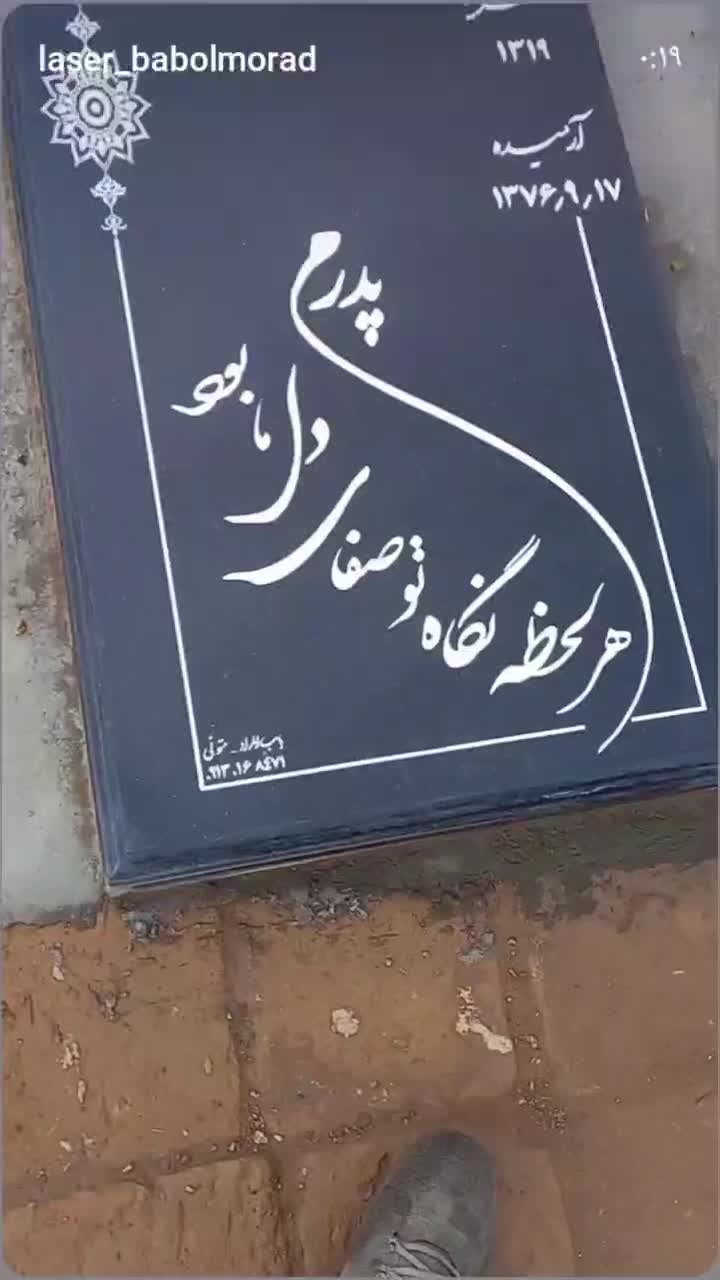 laser_babolmorad
۰:۱۹
۱۳۱۹
آرمیده
۱۳۷۶٫۹٫۱۷
پدرم
هر لحظه نگاه تو صفای دل ما بود
۰۹۱۳۰۱۶۸۴۷۱